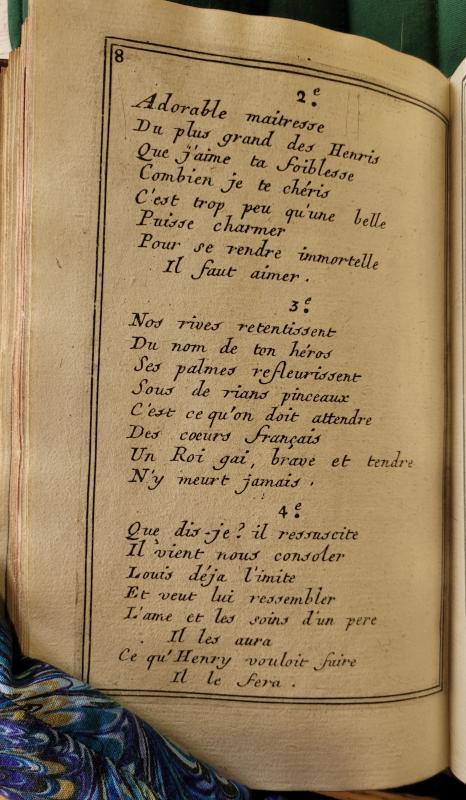 8
2.e
Adorable maitresse
Du plus grand des Henris
Que j'aime ta foiblesse
Combien je te chéris
C'est trop peu qu'une belle
Puisse charmer
Pour se rendre immortelle
Il faut aimer.
3.e
Nos rives retentissent
Du nom de ton héros
Ses palmes refleurissent
Sous de rians pinceaux
C'est ce qu'on doit attendre
Des coeurs français
Un Roi gai, brave et tendre
N'y meurt jamais.
4.e
Que dis-je? il ressuscite
Il vient nous consoler
Louis déja l'imite
Et veut lui ressembler
L'ame et les soins d'un pere
Il les aura
Ce qu'Henry vouloit faire
Il le fera.